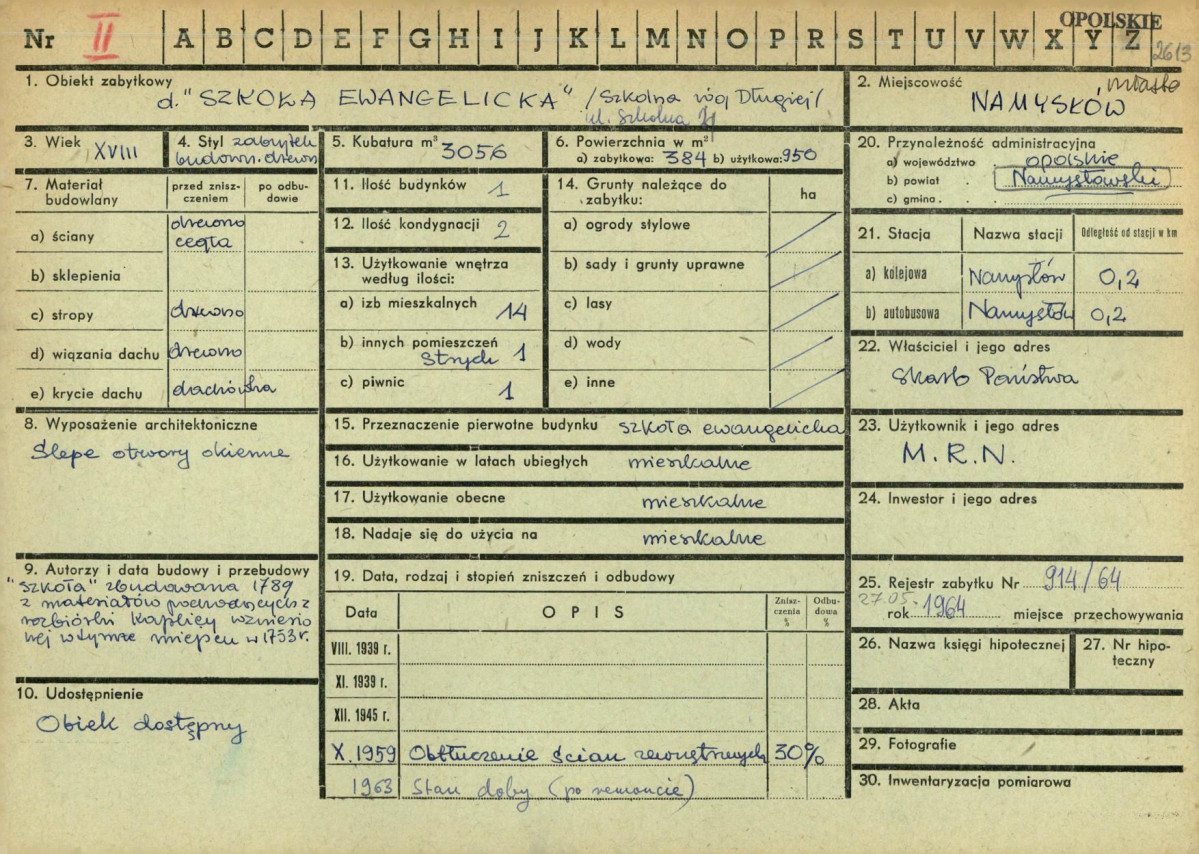 OPOLSKIE
Nr II A B C D E F G H I J K L M N O P R S T U V W X Y Z 2613
1. Obiekt zabytkowy
d. "SZKOŁA EWANGELICKA" /Szkolna róg Długiej/
ul. Szkolna
2. Miejscowość miasto
NAMYSŁÓW
3. Wiek XVIII
4. Styl zabytek
budown. drewn
5. Kubatura m³ 3056
6. Powierzchnia w m²
a) zabytkowa: 384 b) użytkowa: 950
20. Przynależność administracyjna
a) województwo opolskie
b) powiat Namysłowski
c) gmina
7. Materiał budowlany
przed zniszczeniem
po odbudowie
a) ściany drewno
cegła
b) sklepienia
c) stropy drewno
d) wiązania dachu drewno
e) krycie dachu dachówka
11. Ilość budynków 1
12. Ilość kondygnacji 2
13. Użytkowanie wnętrza
według ilości:
a) izb mieszkalnych 14
b) innych pomieszczeń
Strych 1
c) piwnic 1
14. Grunty należące do
zabytku:
ha
a) ogrody stylowe
b) sady i grunty uprawne
c) lasy
d) wody
e) inne
21. Stacja Nazwa stacji Odległość od stacji w km
a) kolejowa Namysłów 0,2
b) autobusowa Namysłów 0,2
22. Właściciel i jego adres
Skarb Państwa
8. Wyposażenie architektoniczne
Ślepe otwory okienne
15. Przeznaczenie pierwotne budynku szkoła ewangelicka
16. Użytkowanie w latach ubiegłych mieszkalne
17. Użytkowanie obecne mieszkalne
18. Nadaje się do użycia na mieszkalne
23. Użytkownik i jego adres
M.R.N.
24. Inwestor i jego adres
9. Autorzy i data budowy i przebudowy
"Szkoła" zbudowana 1789
z materiałów pochodzących z
rozbiórki kaplicy wzniesio
nej w tymże miejscu w 1753 r.
10. Udostępnienie
Obiek dostępny
19. Data, rodzaj i stopień zniszczeń i odbudowy
Data OPIS Zniszczenia % Odbudowa %
VIII. 1939 r.
XI. 1939 r.
XII. 1945 r.
X. 1959 Obtłuczenie ścian zewnętrznych 30%
1963 Stan dobry (po remoncie)
25. Rejestr zabytku Nr 914/64
27.05.
rok 1964 miejsce przechowywania
26. Nazwa księgi hipotecznej
27. Nr hipoteczny
28. Akta
29. Fotografie
30. Inwentaryzacja pomiarowa